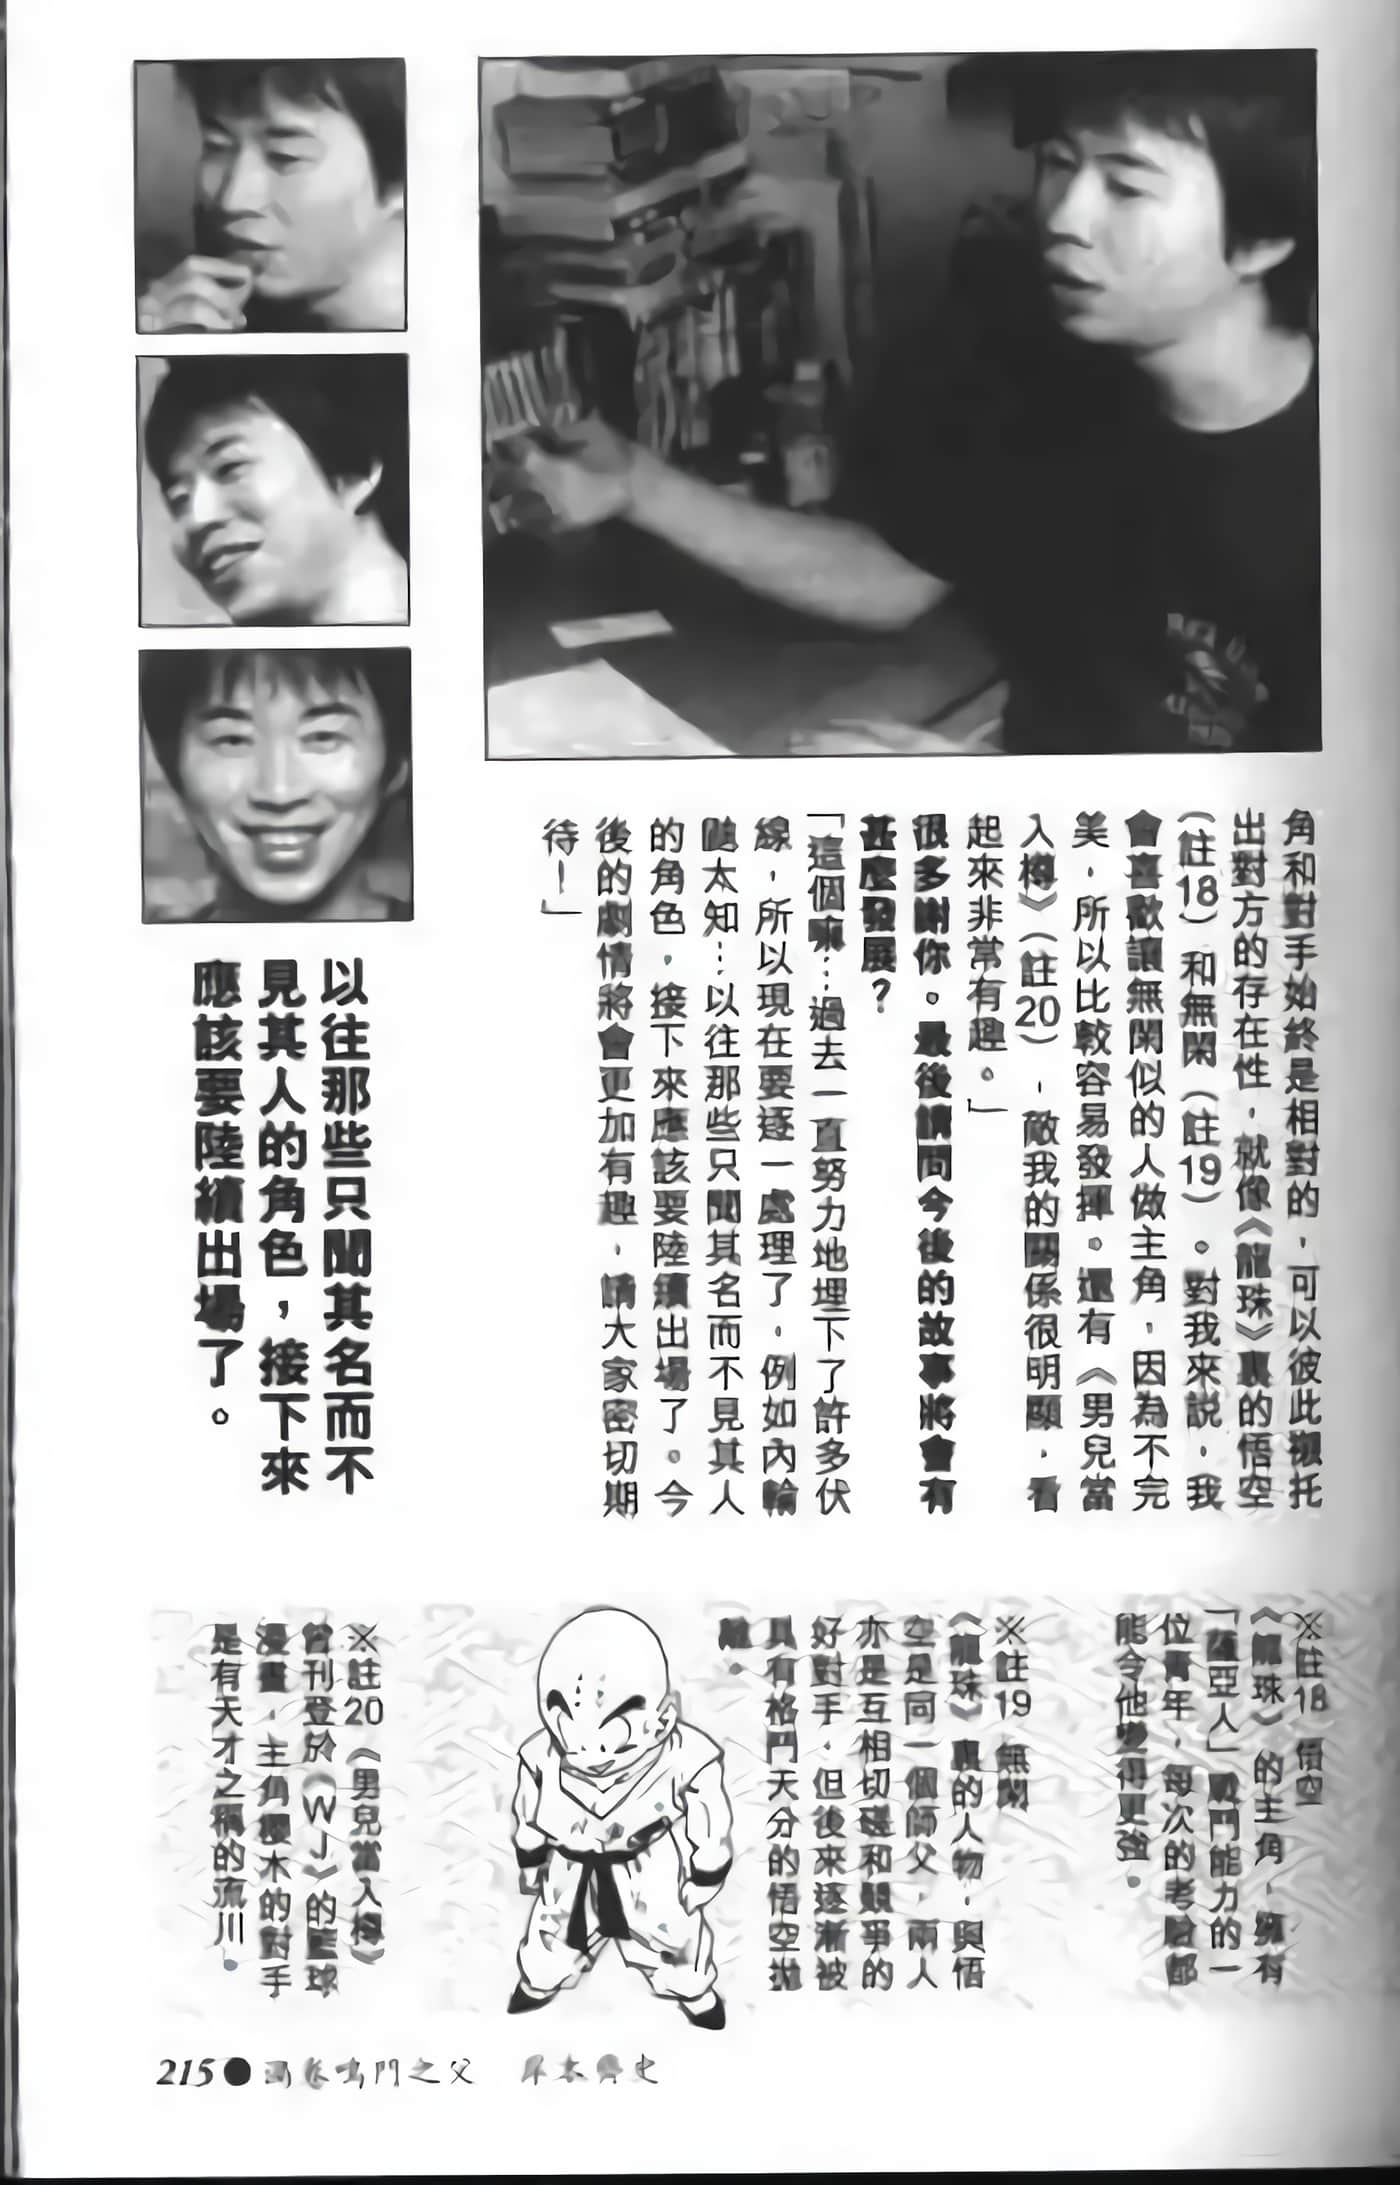 角和對手始終是相對的，可以彼此襯托
出對方的存在性，就像《龍珠》裏的悟空
（註18）和無閑（註19）。對我來説，我
會喜歡讓無閑似的人做主角，因為不完
美，所以比較容易發揮。還有《男兒當
入樽》（註20），敵我的關係很明顯，看
起來非常有趣。」
很多謝你。最後請問今後的故事將會有
甚麼發展？
「這個嘛…過去一直努力地埋下了許多伏
線，所以現在要逐一處理了，例如內輪
太知…以往那些只聞其名而不見其人
的角色，接下來應該要陸續出場了。今
後的劇情將會更加有趣，請大家密切期
待！」
以往那些只聞其名而不
見其人的角色，接下來
應該要陸續出場了。
※註18 悟空
《龍珠》的主角，擁有
「亞人」戰鬥能力的一
位青年，每次的考驗都
能令他變得更強。
※註19 無閑
《龍珠》裏的人物，與悟
空是同一個師父，兩人
亦是互相切磋和競爭的
好對手，但後來逐漸被
具有格鬥天分的悟空拋
離。
※註20《男兒當入樽》
曾刊登於《WJ》的籃球
漫畫，主角櫻木的對手
是有天才之稱的流川。
215●渦卷鳴門之父 岸本齊史